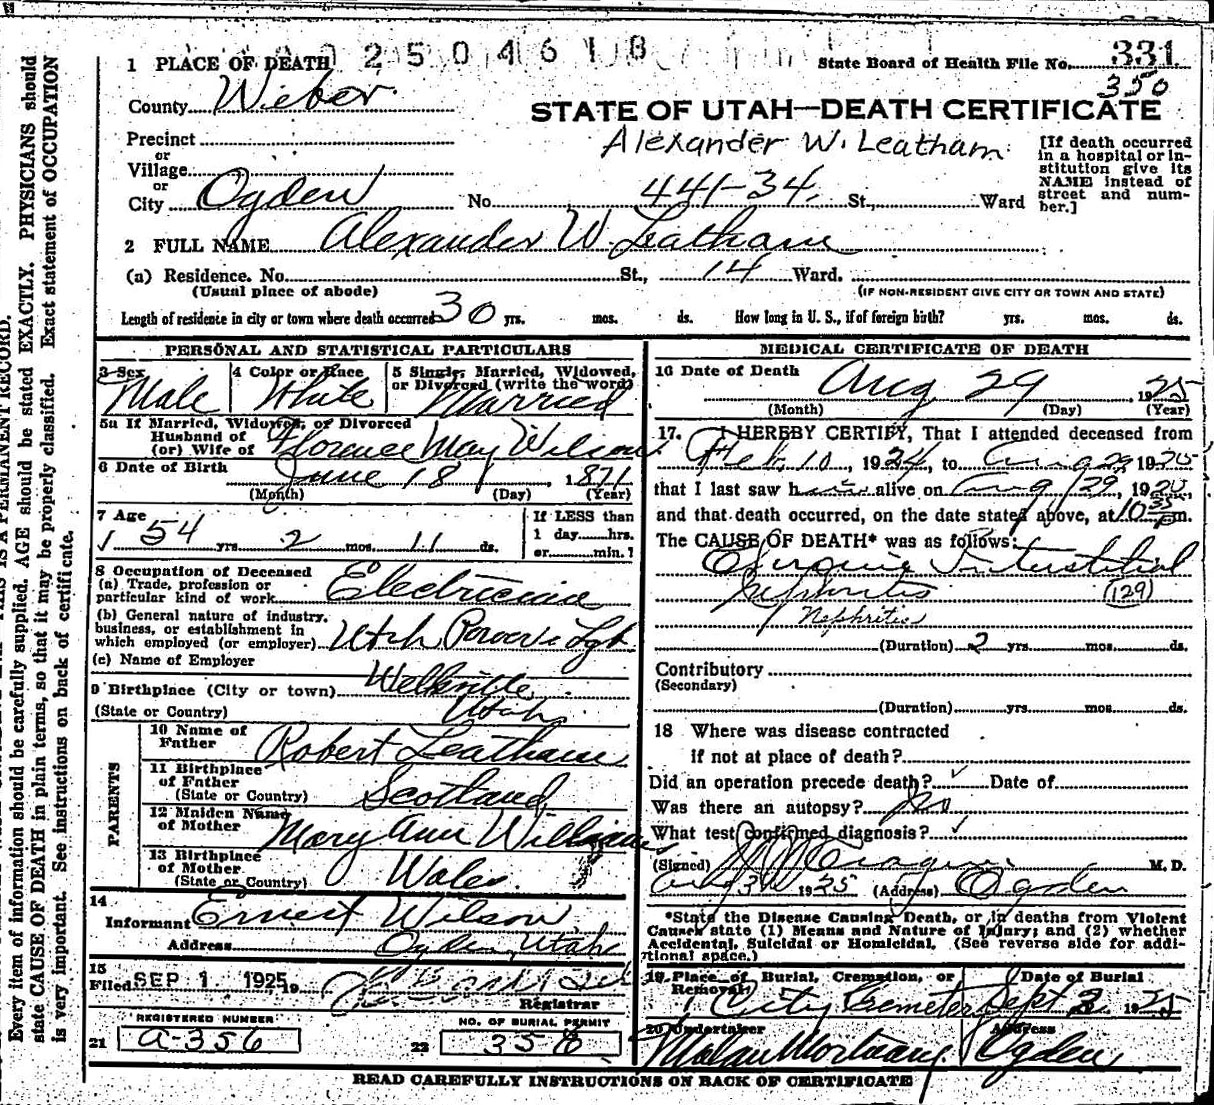 2504618
1 PLACE OF DEATH
State Board of Health File No. 331
350
County Weber
STATE OF UTAH—DEATH CERTIFICATE
Precinct
Alexander W. Leatham
or
Village
or
City Ogden No. 441-34. St., Ward
[If death occurred
in a hospital or in-
stitution give its
NAME instead of
street and num-
ber.]
2 FULL NAME Alexander W Leatham
(a) Residence. No. St., 14 Ward.
(Usual place of abode)
(IF NON-RESIDENT GIVE CITY OR TOWN AND STATE)
Length of residence in city or town where death occurred 30 yrs. mos. ds. How long in U. S., if of foreign birth? yrs. mos. ds.
PERSONAL AND STATISTICAL PARTICULARS
3 Sex
Male
4 Color or Race
White
5 Single, Married, Widowed,
or Divorced (write the word)
Married
5a If Married, Widowed, or Divorced
Husband of
(or) Wife of Florence May Wilson
6 Date of Birth
June 18, 1871
(Month) (Day) (Year)
7 Age
54 yrs. 2 mos. 11 ds.
If LESS than
1 day hrs.
or min.?
8 Occupation of Deceased
(a) Trade, profession or
particular kind of work Electrician
(b) General nature of industry,
business, or establishment in
which employed (or employer) Utah Power & Lgt
(c) Name of Employer
9 Birthplace (City or town) Wellsville
(State or Country) Utah
PARENTS
10 Name of
Father Robert Leatham
11 Birthplace
of Father
(State or Country) Scotland
12 Maiden Name
of Mother Mary Ann Williams
13 Birthplace
of Mother
(State or Country) Wales
14
Informant Ernest Wilson
Address Ogden, Utah
15
Filed SEP 1 1925 19
Registrar
REGISTERED NUMBER
21 a-356
NO. OF BURIAL PERMIT
22 358
MEDICAL CERTIFICATE OF DEATH
16 Date of Death
Aug 29 1925
(Month) (Day) (Year)
17. I HEREBY CERTIFY, That I attended deceased from
Feb 10, 1924, to Aug 29 1925
that I last saw him alive on Aug 29, 1925,
and that death occurred, on the date stated above, at 10 35 p m.
The CAUSE OF DEATH* was as follows:
Chronic Interstitial
Nephritis (129)
Nephritis
(Duration) 2 yrs. mos. ds.
Contributory
(Secondary)
(Duration) yrs. mos. ds.
18 Where was disease contracted
if not at place of death?
Did an operation precede death? Date of
Was there an autopsy? No
What test confirmed diagnosis?
(Signed) M. D.
1925 (Address) Ogden
*State the Disease Causing Death, or in deaths from Violent
Causes state (1) Means and Nature of Injury; and (2) whether
Accidental, Suicidal or Homicidal. (See reverse side for addi-
tional space.)
19 Place of Burial, Cremation, or
Removal
City Cemetery
Date of Burial
Sept 2 1925
20 Undertaker
Malan Mortuary
Address
Ogden
READ CAREFULLY INSTRUCTIONS ON BACK OF CERTIFICATE
THIS IS A PERMANENT RECORD.
Every item of information should be carefully supplied. AGE should be stated EXACTLY. PHYSICIANS should
state CAUSE OF DEATH in plain terms, so that it may be properly classified. Exact statement of OCCUPATION
is very important. See instructions on back of certificate.